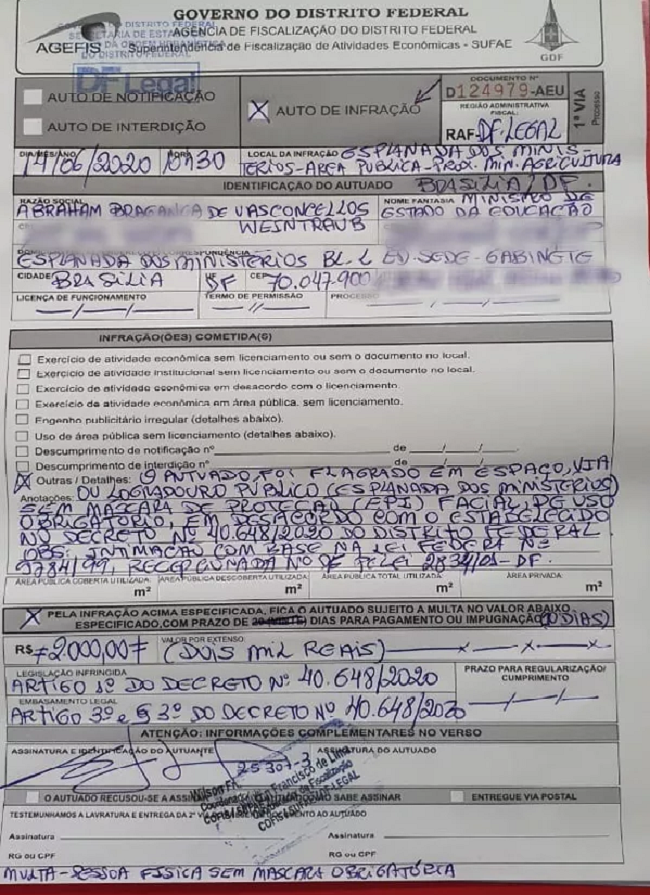 GOVERNO DO DISTRITO FEDERAL
AGEFIS
AGÊNCIA DE FISCALIZAÇÃO DO DISTRITO FEDERAL
Superintendência de Fiscalização de Atividades Econômicas - SUFAE
GDF
DF Legal
AUTO DE NOTIFICAÇÃO
AUTO DE INTERDIÇÃO
X AUTO DE INFRAÇÃO
DOCUMENTO Nº
D124979-AEU
REGIÃO ADMINISTRATIVA FISCAL:
RAF-DF-LEGAL
1ª VIA
Processo
DIA/MÊS/ANO
14/06/2020
HORA
10h30
LOCAL DA INFRAÇÃO ESPLANADA DOS MINIS-
TÉRIOS-AREA PUBLICA-PROX. MIN. AGRICULTURA
IDENTIFICAÇÃO DO AUTUADO
BRASILIA/DF.
RAZÃO SOCIAL
ABRAHAM BRAGANÇA DE VASCONCELLOS
WEINTRAUB
NOME FANTASIA MINISTRO DE
ESTADO DA EDUCAÇÃO
ESPLANADA DOS MINISTÉRIOS BL-L ED-SEDE-GABINETE
CIDADE BRASILIA
UF DF
CEP 70.047-900
LICENÇA DE FUNCIONAMENTO
TERMO DE PERMISSÃO
PROCESSO
INFRAÇÃO(ÕES) COMETIDA(S)
Exercício de atividade econômica sem licenciamento ou sem o documento no local.
Exercício de atividade institucional sem licenciamento ou sem o documento no local.
Exercício de atividade econômica em desacordo com o licenciamento.
Exercício de atividade econômica em área pública, sem licenciamento.
Engenho publicitário irregular (detalhes abaixo).
Uso de área pública sem licenciamento (detalhes abaixo).
Descumprimento de notificação nº de / /
Descumprimento de interdição nº de / /
X Outras / Detalhes: O AUTUADO, FOI FLAGRADO EM ESPAÇO, VIA
Anotações: OU LOGRADOURO PÚBLICO (ESPLANADA DOS MINISTÉRIOS)
SEM MASCARA DE PROTEÇÃO (EPI) FACIAL DE USO
OBRIGATÓRIO, EM DESACORDO COM O ESTABELECIDO
NO DECRETO Nº 40.648/2020 DO DISTRITO FEDERAL.
OBS: INTIMAÇÃO COM BASE NA LEI FEDERAL Nº
9784/99, RECEPCIONADA NO DF PELEI 2834/01-DF.
ÁREA PÚBLICA COBERTA UTILIZADA: m²
ÁREA PÚBLICA DESCOBERTA UTILIZADA: m²
ÁREA PÚBLICA TOTAL UTILIZADA: m²
ÁREA PRIVADA m²
X PELA INFRAÇÃO ACIMA ESPECIFICADA, FICA O AUTUADO SUJEITO A MULTA NO VALOR ABAIXO
ESPECIFICADO, COM PRAZO DE DIAS PARA PAGAMENTO OU IMPUGNAÇÃO (10 DIAS)
R$ 2.000,00
VALOR POR EXTENSO:
(DOIS MIL REAIS)
LEGISLAÇÃO INFRINGIDA
ARTIGO 1º DO DECRETO Nº 40.648/2020
PRAZO PARA REGULARIZAÇÃO/
CUMPRIMENTO
EMBASAMENTO LEGAL
ARTIGO 3º e § 3º DO DECRETO Nº 40.648/2020
ATENÇÃO: INFORMAÇÕES COMPLEMENTARES NO VERSO
ASSINATURA E IDENTIFICAÇÃO DO AUTUANTE
25307-3
ASSINATURA DO AUTUADO
Francisco de Lima
O AUTUADO RECUSOU-SE A ASSINAR
SABE ASSINAR
ENTREGUE VIA POSTAL
TESTEMUNHAMOS A LAVRATURA E ENTREGA DA 2ª AO AUTUADO
Assinatura
Assinatura
RG ou CPF
RG ou CPF
MULTA-PESSOA FISICA SEM MASCARA OBRIGATÓRIA